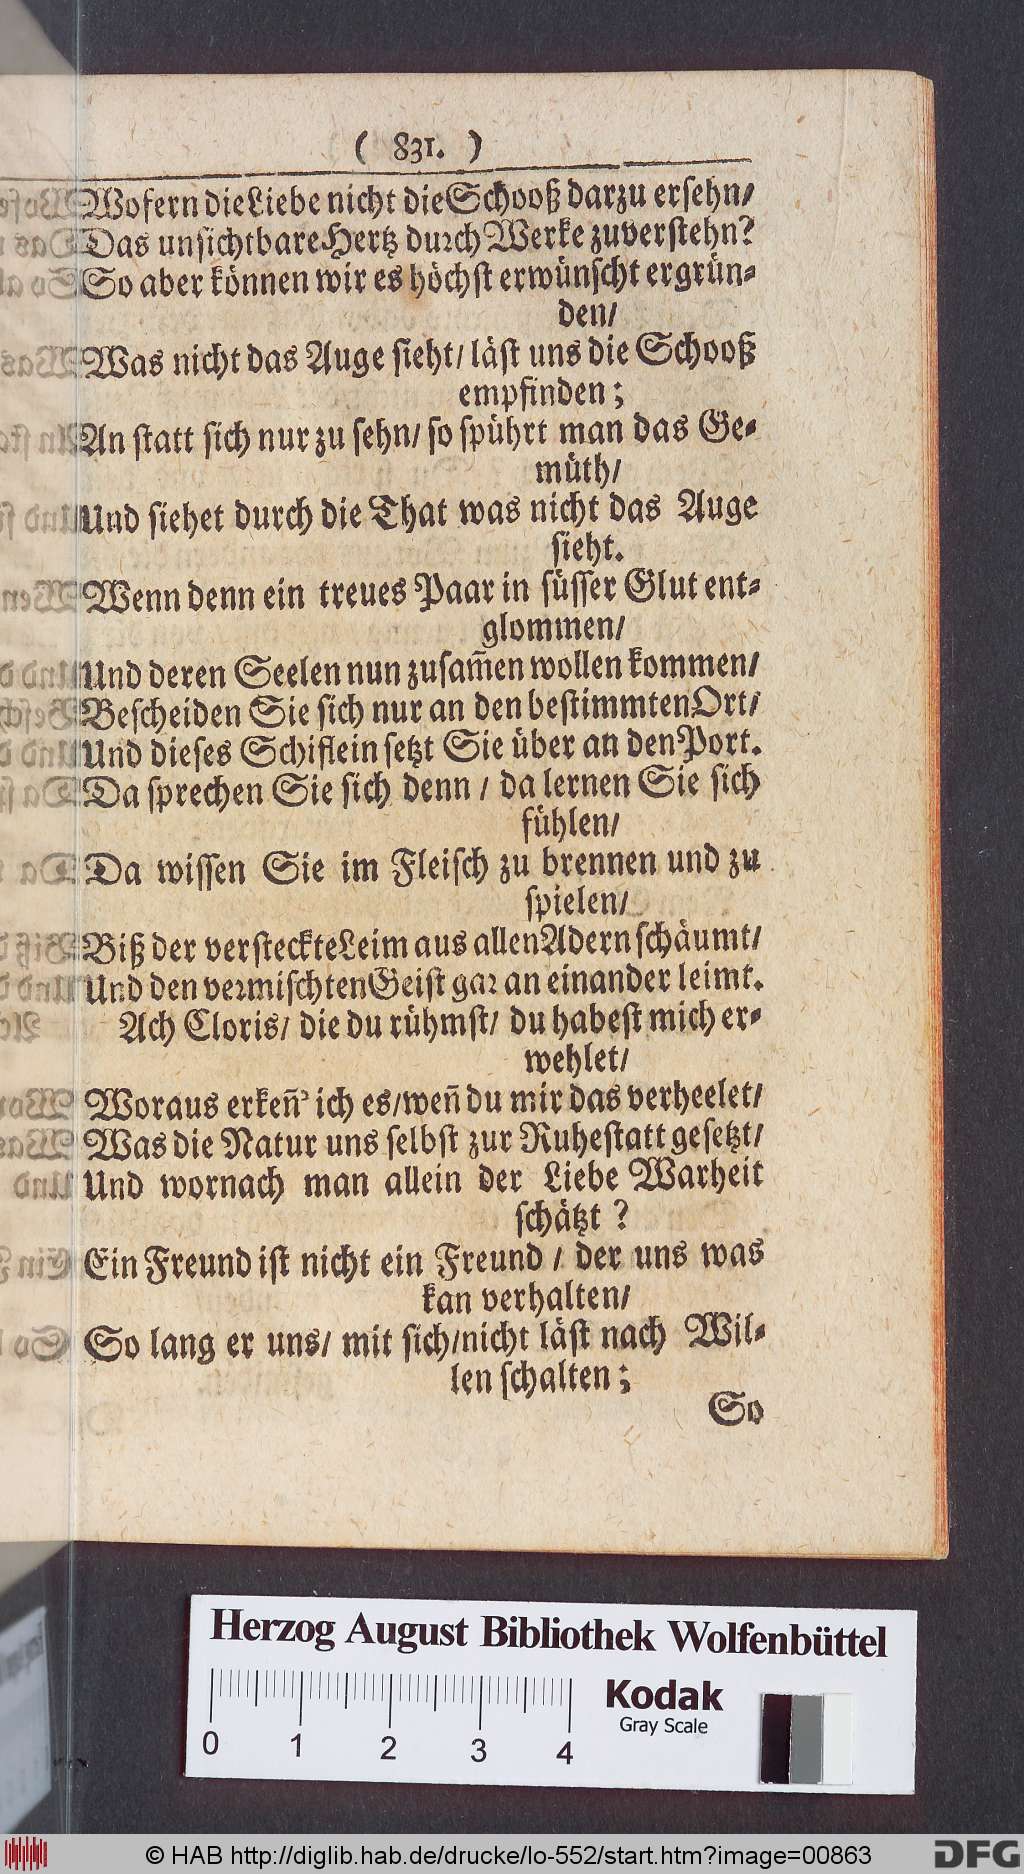 ( 831. )
Wofern die Liebe nicht die Schooß darzu ersehn/
Das unsichtbare Hertz durch Werke zuverstehn?
So aber können wir es höchst erwünscht ergrün-
den/
Was nicht das Auge sieht/ läst uns die Schooß
empfinden;
An statt sich nur zu sehn/ so spührt man das Ge-
müth/
Und siehet durch die That was nicht das Auge
sieht.
Wenn denn ein treues Paar in süsser Glut ent-
glommen/
Und deren Seelen nun zusam̃en wollen kommen/
Bescheiden Sie sich nur an den bestimmten Ort/
Und dieses Schiflein setzt Sie über an den Port.
Da sprechen Sie sich denn / da lernen Sie sich
fühlen/
Da wissen Sie im Fleisch zu brennen und zu
spielen/
Biß der versteckte Leim aus allen Adern schäumt/
Und den vermischten Geist gar an einander leimt.
Ach Cloris/ die du rühmst/ du habest mich er-
wehlet/
Woraus erken̄' ich es/ wen̄ du mir das verheelet/
Was die Natur uns selbst zur Ruhestatt gesetzt/
Und wornach man allein der Liebe Warheit
schätzt ?
Ein Freund ist nicht ein Freund / der uns was
kan verhalten/
So lang er uns/ mit sich/ nicht läst nach Wil-
len schalten;
So
Herzog August Bibliothek Wolfenbüttel
Kodak
Gray Scale
0 1 2 3 4
© HAB http://diglib.hab.de/drucke/lo-552/start.htm?image=00863
DFG